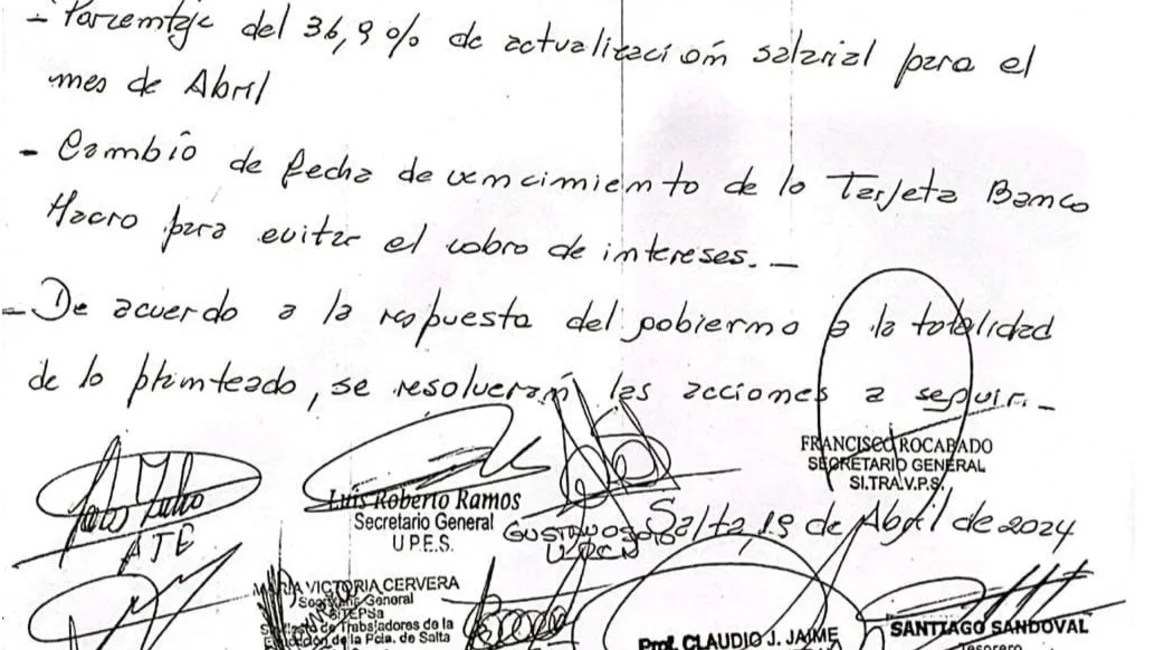 - Porcentaje del 36,9% de actualización salarial para el
mes de Abril
- Cambio de fecha de vencimiento de la Tarjeta Banco
Macro para evitar el cobro de intereses. -
- De acuerdo a la respuesta del gobierno a la totalidad
de lo planteado, se resolverán las acciones a seguir. -
FRANCISCO ROCABADO
SECRETARIO GENERAL
SI.TRA.V.P.S.
Luis Roberto Ramos
Secretario General
U.P.E.S.
Salta, 19 de Abril de 2024
Julio
ATE
GUSTAVO
UPCN
MARIA VICTORIA CERVERA
Secretaria General
SITEPSa
Sindicato de Trabajadores de la
Educación de la Pcia. de Salta
Prof. CLAUDIO J. JAIME
SANTIAGO SANDOVAL
Tesorero